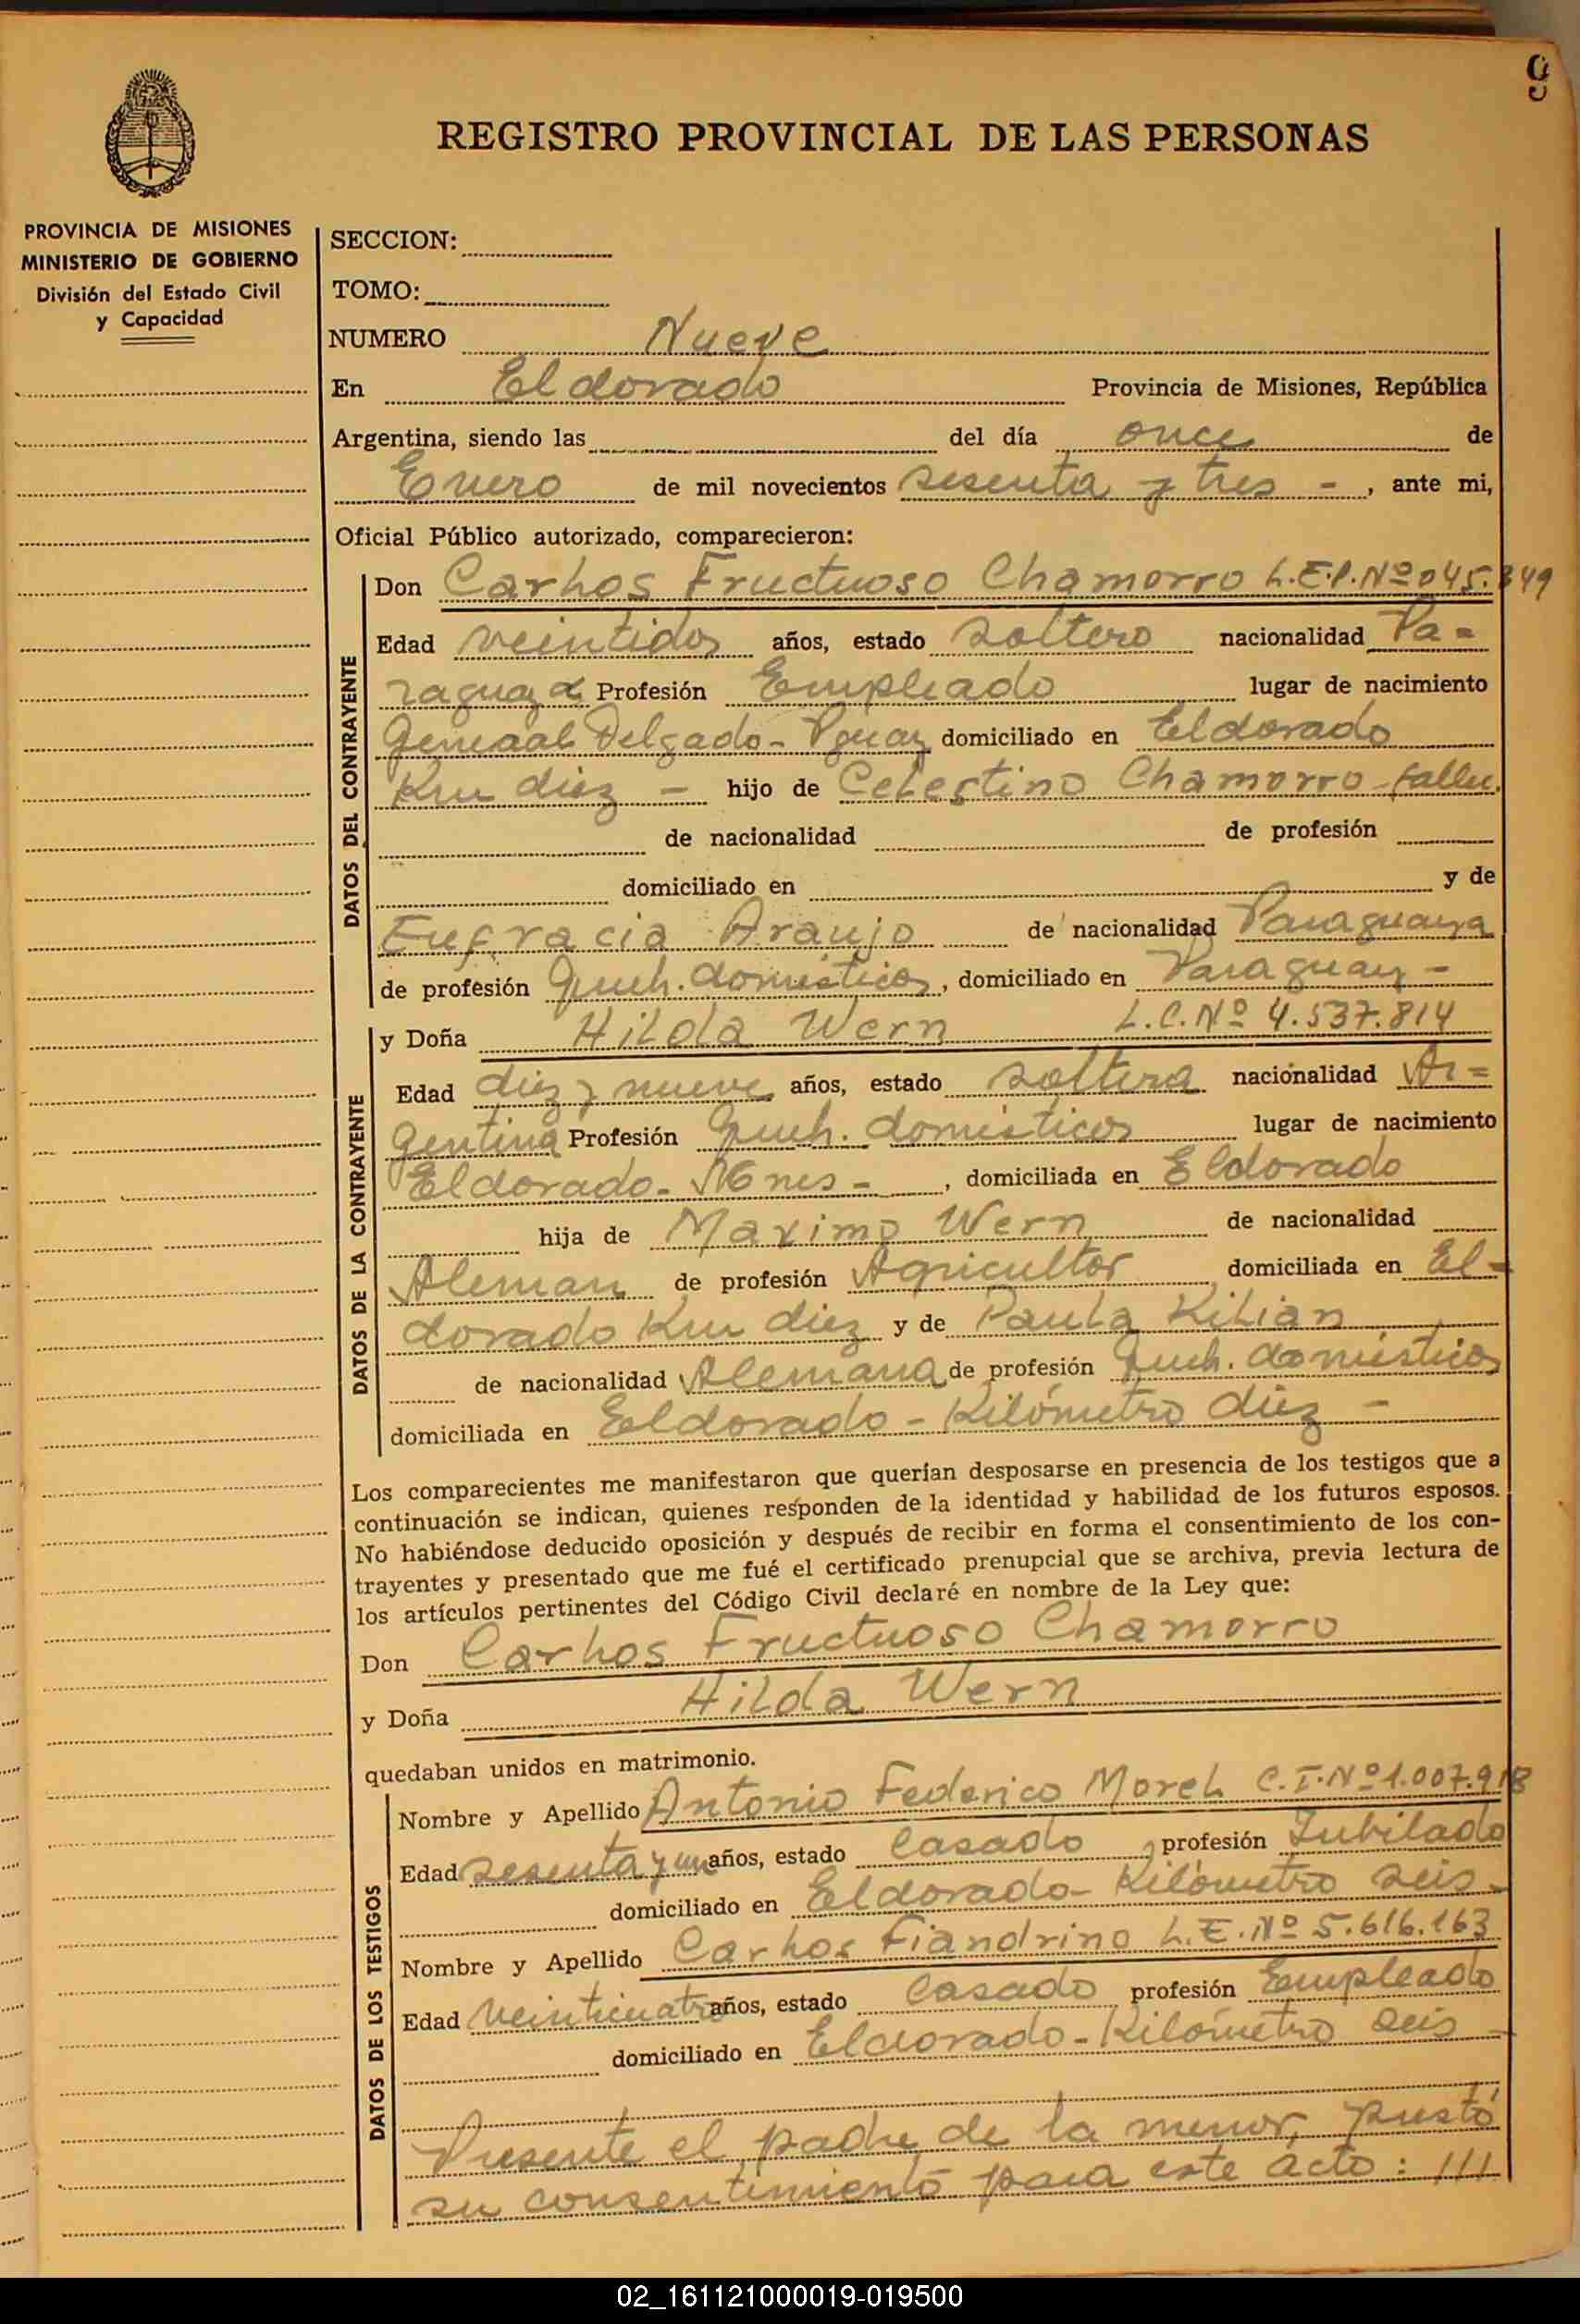 9
REGISTRO PROVINCIAL DE LAS PERSONAS
PROVINCIA DE MISIONES
MINISTERIO DE GOBIERNO
División del Estado Civil
y Capacidad
SECCION:
TOMO:
NUMERO Nueve
En Eldorado Provincia de Misiones, República
Argentina, siendo las del día once de
Enero de mil novecientos sesenta y tres - , ante mi,
Oficial Público autorizado, comparecieron:
DATOS DEL CONTRAYENTE
Don Carlos Fructuoso Chamorro L.E.P. Nº 045.349
Edad veintidos años, estado soltero nacionalidad Pa=
raguaya Profesión Empleado lugar de nacimiento
General Delgado - Pguay domiciliado en Eldorado
Km diez - hijo de Celestino Chamorro - fallec.
de nacionalidad de profesión
domiciliado en y de
Eufracia Araujo de nacionalidad Paraguaya
de profesión Queh. domésticos, domiciliado en Paraguay -
DATOS DE LA CONTRAYENTE
y Doña Hilda Wern L.C. Nº 4.537.814
Edad diez y nueve años, estado soltera nacionalidad Ar=
gentina Profesión Queh. domésticos lugar de nacimiento
Eldorado - Mnes - , domiciliada en Eldorado
hija de Maximo Wern de nacionalidad
Aleman de profesión Agricultor domiciliada en El-
dorado Km diez y de Paula Kilian
de nacionalidad Alemana de profesión Queh. domésticos
domiciliada en Eldorado - Kilómetro diez -
Los comparecientes me manifestaron que querían desposarse en presencia de los testigos que a
continuación se indican, quienes responden de la identidad y habilidad de los futuros esposos.
No habiéndose deducido oposición y después de recibir en forma el consentimiento de los con-
trayentes y presentado que me fué el certificado prenupcial que se archiva, previa lectura de
los artículos pertinentes del Código Civil declaré en nombre de la Ley que:
Don Carlos Fructuoso Chamorro
y Doña Hilda Wern
quedaban unidos en matrimonio.
DATOS DE LOS TESTIGOS
Nombre y Apellido Antonio Federico Morel C.I. Nº 1.007.918
Edad sesenta y un años, estado Casado, profesión Jubilado
domiciliado en Eldorado - Kilómetro seis -
Nombre y Apellido Carlos Fiandrino L.E. Nº 5.616.163
Edad Veinticuatro años, estado Casado profesión Empleado
domiciliado en Eldorado - Kilómetro seis -
Presente el padre de la menor, prestó
su consentimiento para este acto: ///
02_161121000019-019500